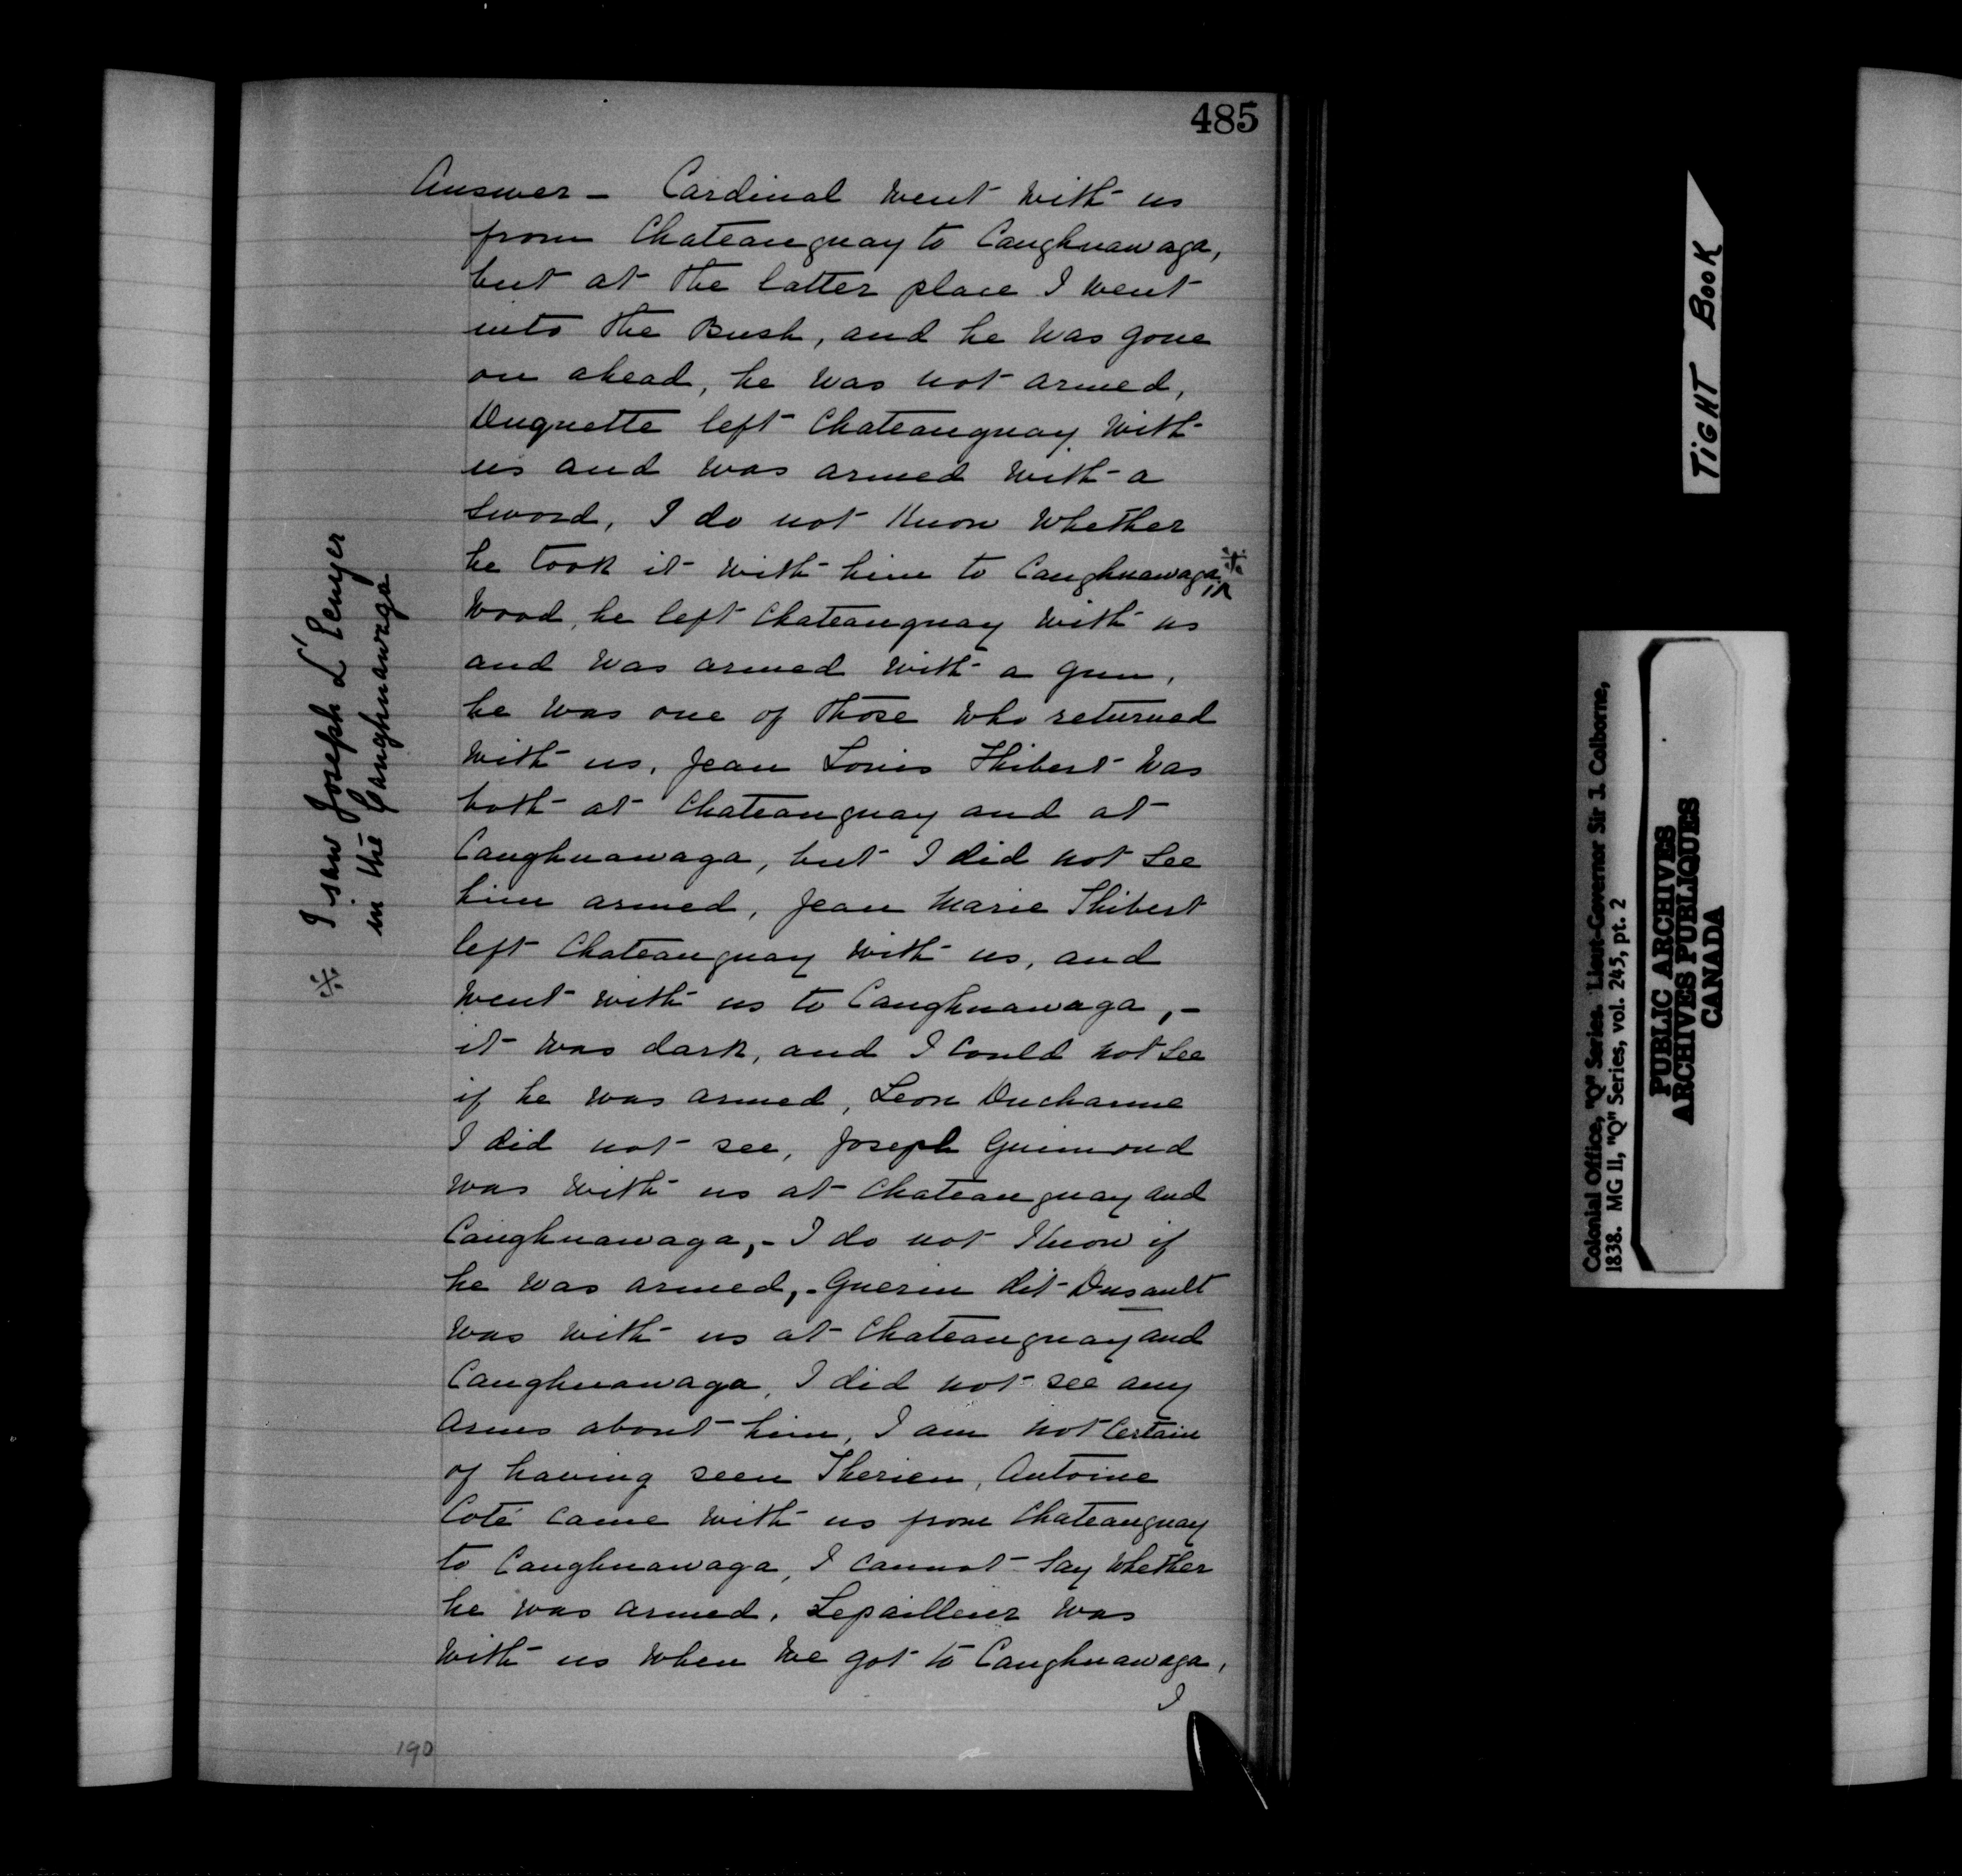 485
Answer - Cardinal went with us
from Chateauguay to Caughnawaga,
but at the latter place I went
into the Bush, and he was gone
on ahead, he was not armed,
Duquette left Chateauguay with
us and was armed with a
Sword, I do not Know whether
he took it with him to Caughnawaga ※
Wood, he left Chateauguay with us
and was armed with a gun,
he was one of those who returned
with us, Jean Louis Thibert was
both at Chateauguay and at
Caughnawaga, but I did not see
him armed, Jean Marie Thibert
left Chateauguay with us, and
went with us to Caughnawaga, -
it was dark, and I could not see
if he was armed, Leon Ducharme
I did not see, Joseph Guimond
was with us at Chateauguay and
Caughnawaga, - I do not Know if
he was armed, - Guerin dit Dusault
was with us at Chateauguay and
Caughnawaga, I did not see any
Arms about him, I am not Certain
of having seen Therien, Antoine
Coté came with us from Chateauguay
to Caughnawaga, I cannot say whether
he was armed, Lepailleur was
with us when we got to Caughnawaga,
I
※ I saw Joseph L'Ecuyer
in the Caughnawaga
190
TIGHT BOOK
Colonial Office, "Q" Series. Lieut-Governor Sir J. Colborne,
1838. MG 11, "Q" Series, vol. 245, pt. 2
PUBLIC ARCHIVES
ARCHIVES PUBLIQUES
CANADA